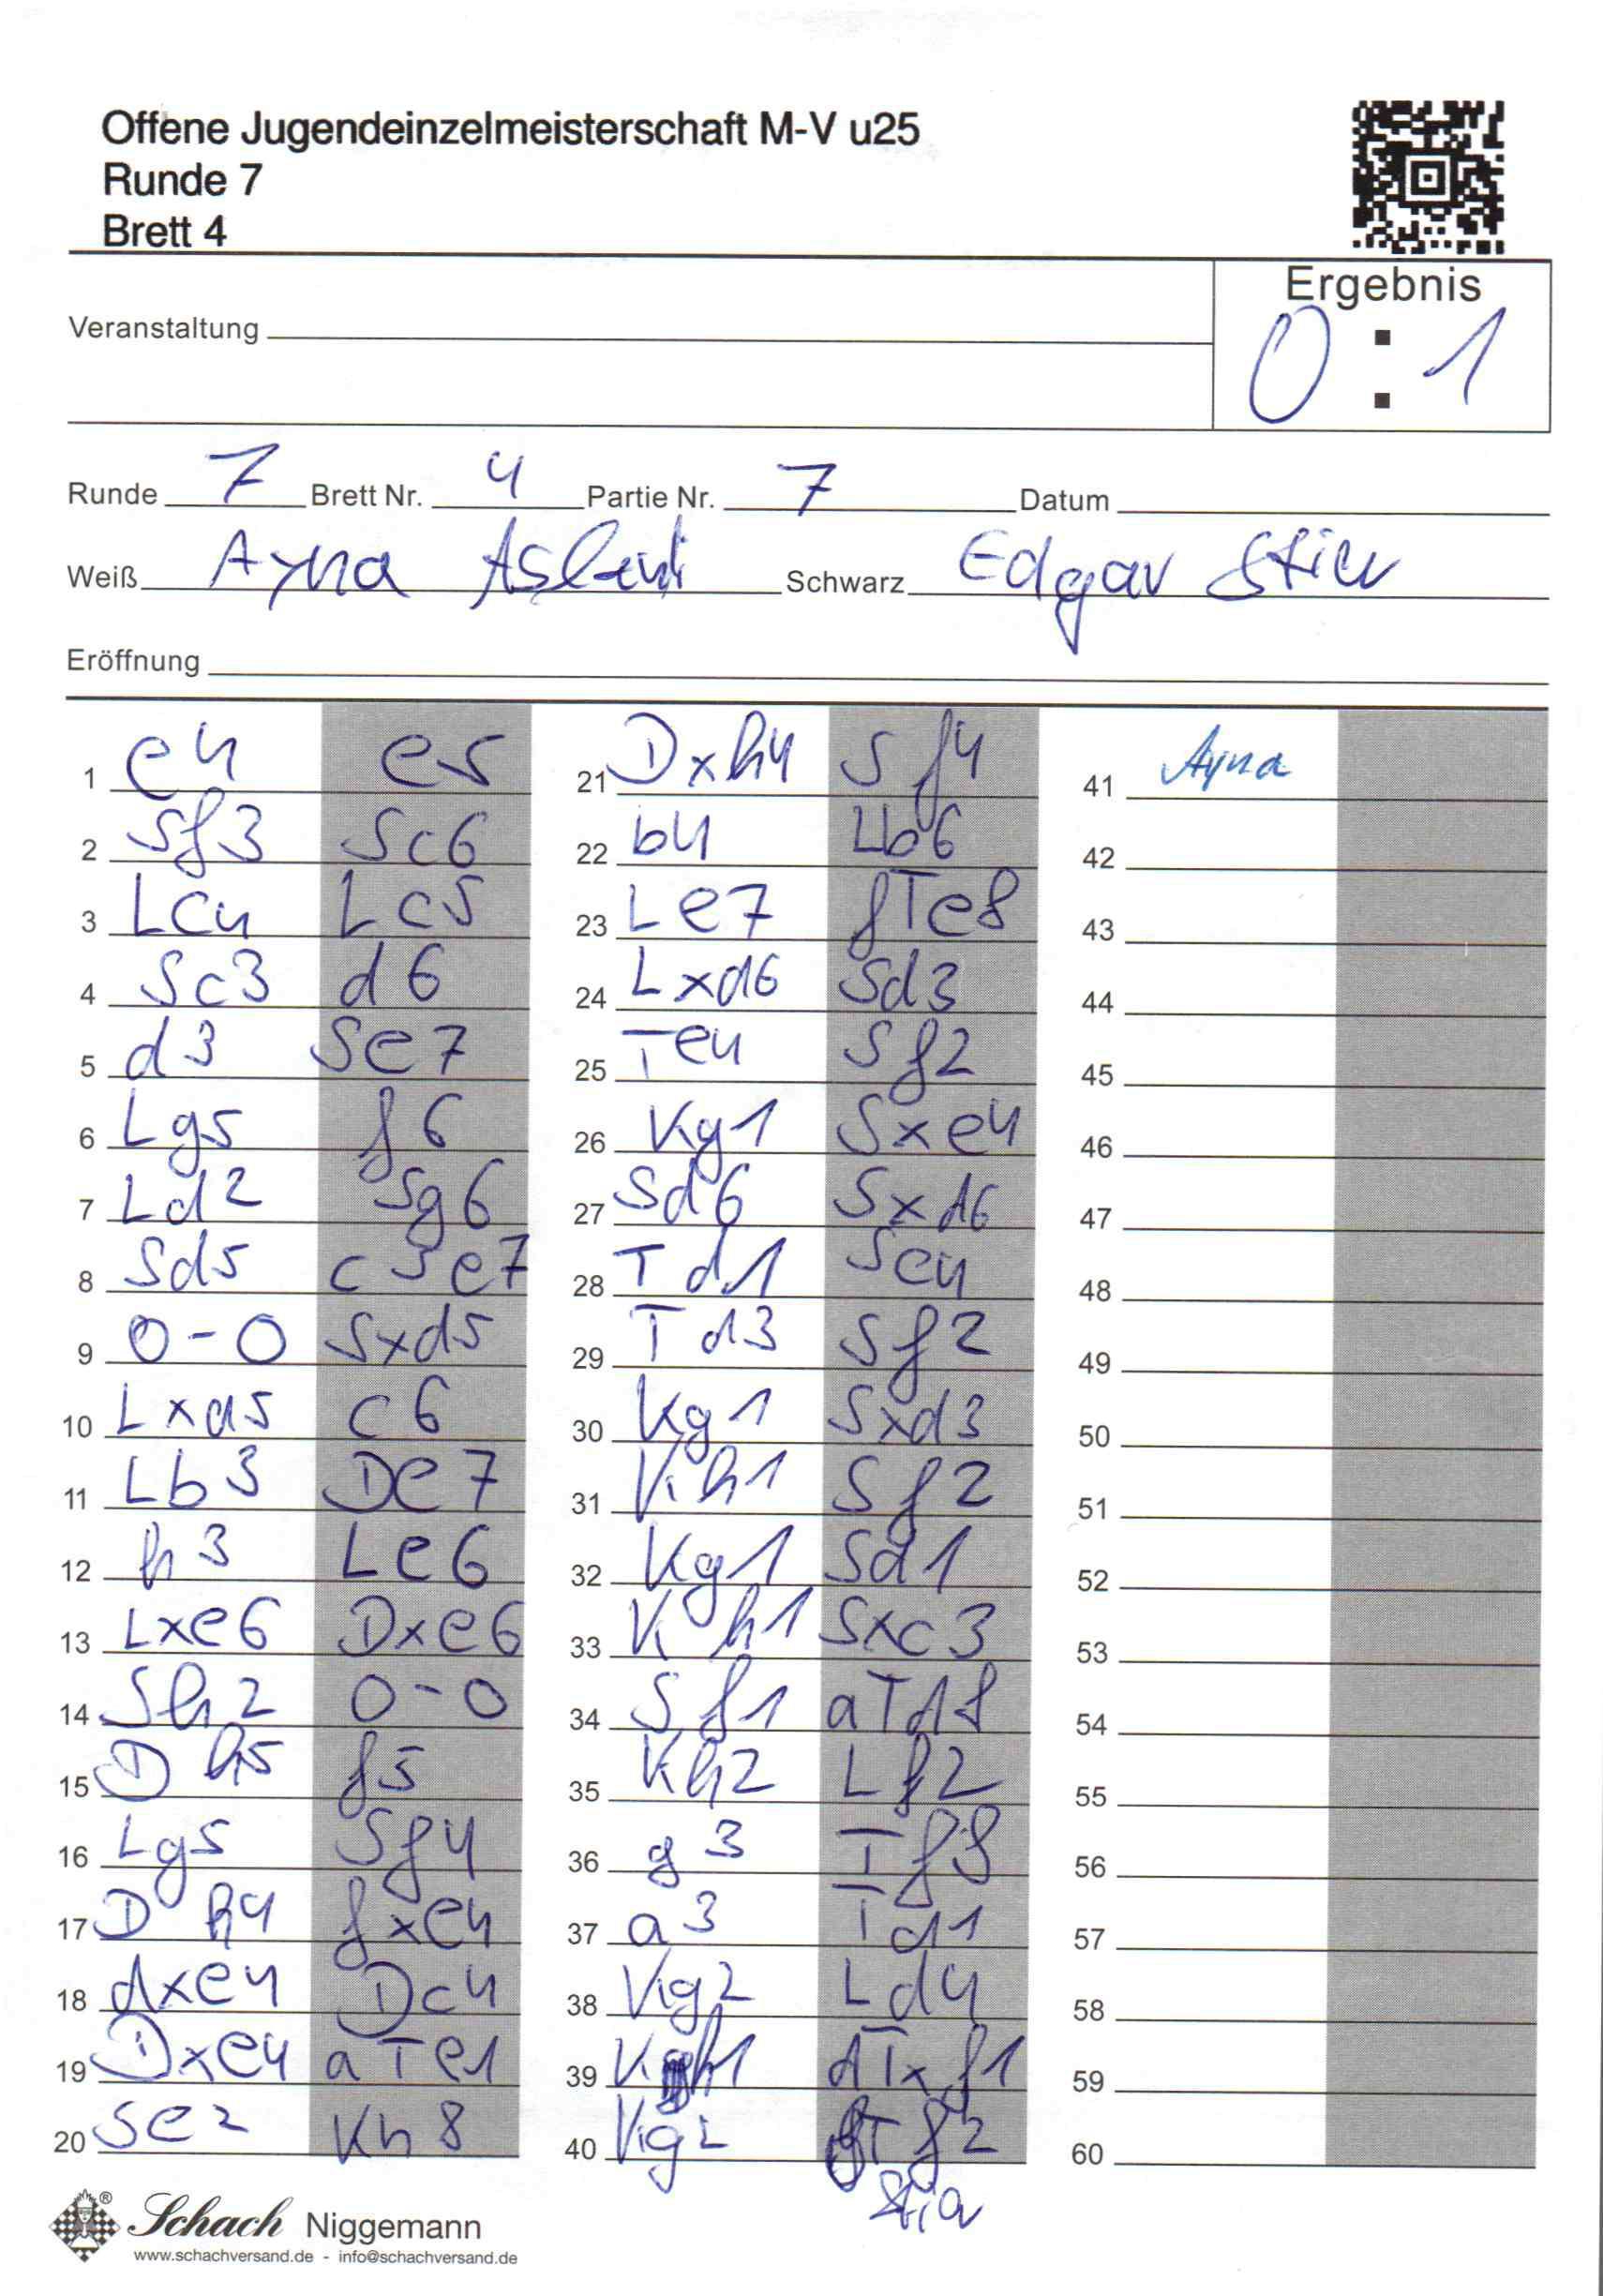 Offene Jugendeinzelmeisterschaft M-V u25
Runde 7
Brett 4
Ergebnis
0 : 1
Veranstaltung
Runde 7 Brett Nr. 4 Partie Nr. 7 Datum
Weiß Ayna Schwarz Edgar
Eröffnung
1 e4 e5
2 Sf3 Sc6
3 Lc4 Lc5
4 Sc3 d6
5 d3 Se7
6 Lg5 f6
7 Ld2 Sg6
8 Sd5 cSe7
9 0-0 Sxd5
10 Lxd5 c6
11 Lb3 De7
12 h3 Le6
13 Lxe6 Dxe6
14 Sh2 0-0
15 Dh5 f5
16 Lg5 Sf4
17 Dh4 fxe4
18 dxe4 Dc4
19 Dxe4 aTe1
20 Se2 Kh8
21 Dxh4 Sf4
22 b4 Lb6
23 Le7 fTe8
24 Lxd6 Sd3
25 Te4 Sf2
26 Kg1 Sxe4
27 Sd6 Sxd6
28 Td1 Se4
29 Td3 Sf2
30 Kg1 Sxd3
31 Kh1 Sf2
32 Kg1 Sd1
33 Kh1 Sxc3
34 Sf1 aTd8
35 Kh2 Lf2
36 g3 Tf8
37 a3 Td1
38 Kg2 Ld4
39 Kh1 dTxf1
40 Kg2 fTf2
41 Ayna
42
43
44
45
46
47
48
49
50
51
52
53
54
55
56
57
58
59
60
Schach Niggemann
www.schachversand.de - info@schachversand.de